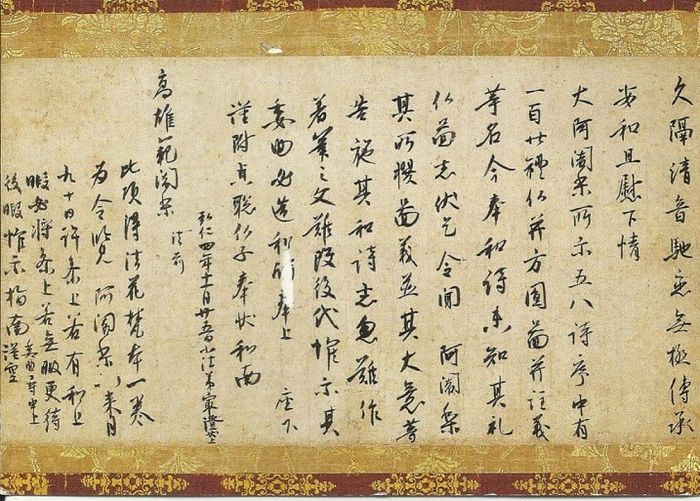 久隔清音馳恋無極傳承
安和且慰下情
大阿闍梨所示五八詩序中有
一百廿礼仏并方圓圖并註義
等名今奉和詩未知其礼
仏圖者伏乞令聞 阿闍梨
其所撰圖義並其大意等
告施其和詩者忽難作
著筆之文難改後代惟示其
委曲必造和詩奉上 座下
謹附貞聡仏子奉状和南
弘仁四年十一月廿五日小法弟最澄状上
高雄範闍梨 法前
此頃得法花梵本一巻
為令覧 阿闍梨以来月
九十日許参上若有和上
暇必将参上若無暇更待
後暇惟示指南謹空
委曲尋申上